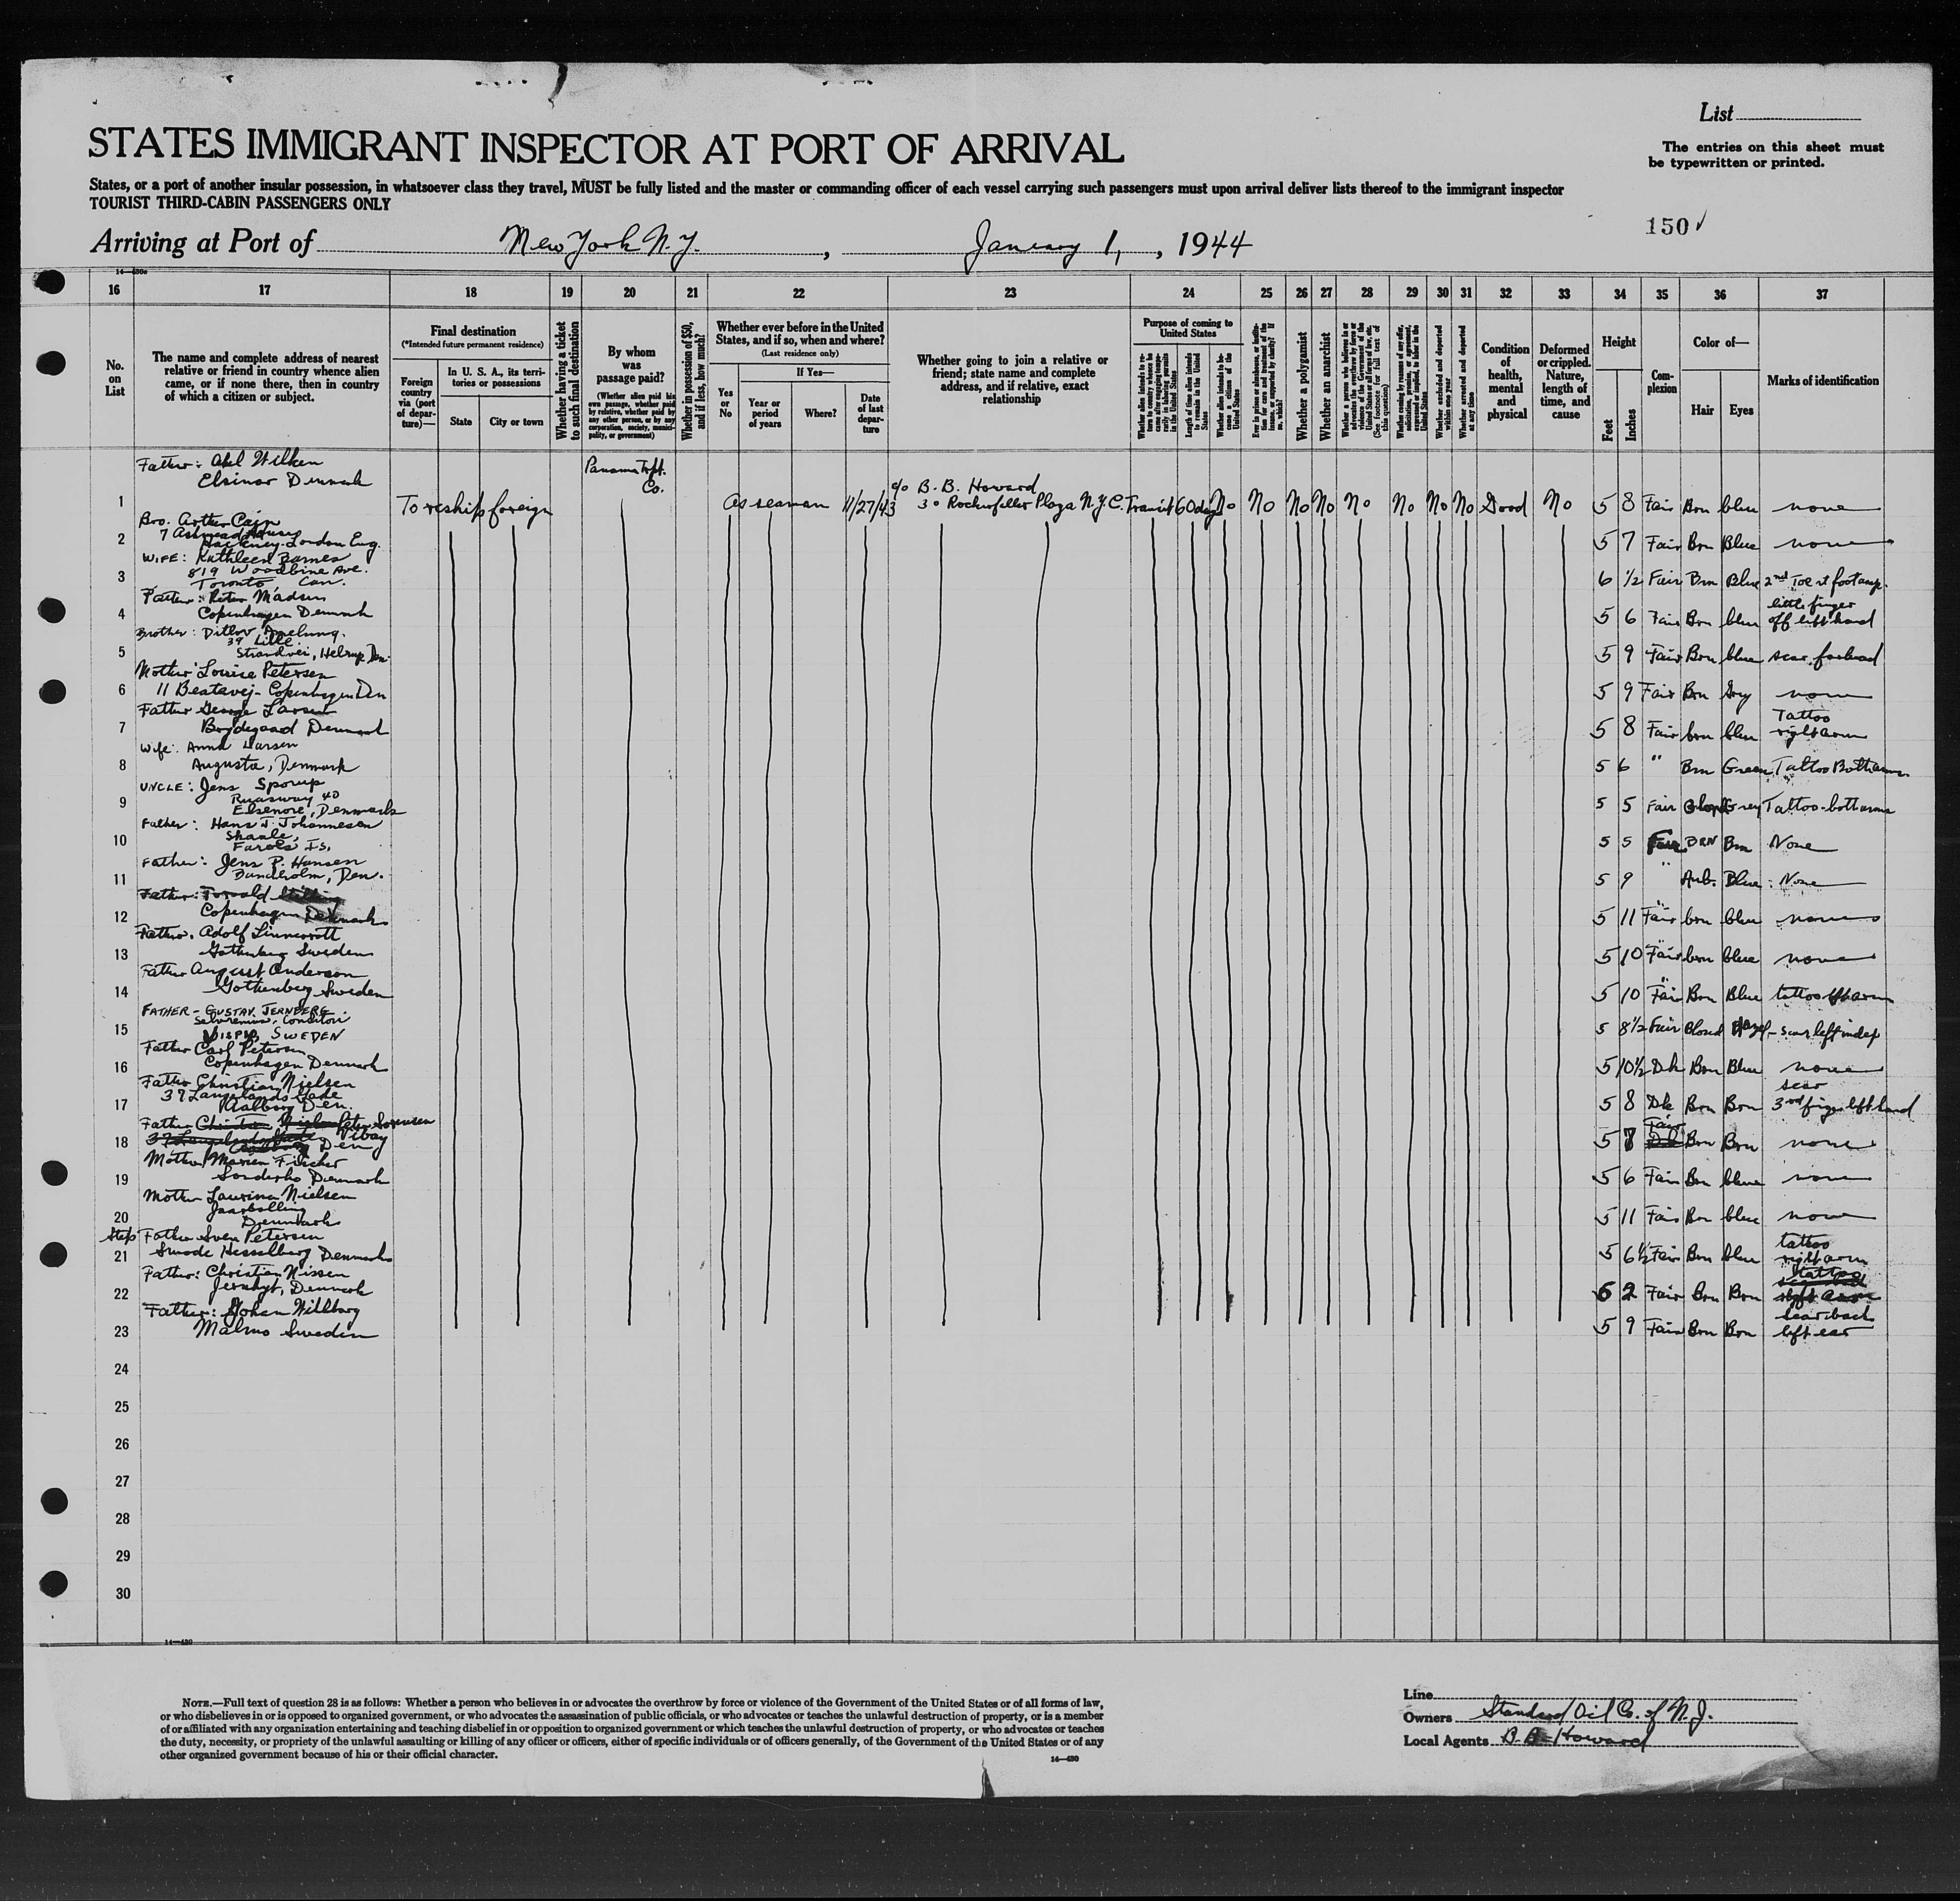 List
The entries on this sheet must
be typewritten or printed.
STATES IMMIGRANT INSPECTOR AT PORT OF ARRIVAL
States, or a port of another insular possession, in whatsoever class they travel, MUST be fully listed and the master or commanding officer of each vessel carrying such passengers must upon arrival deliver lists thereof to the immigrant inspector
TOURIST THIRD-CABIN PASSENGERS ONLY
150
Arriving at Port of New York N.Y. , January 1, , 1944
16 17 18 19 20 21 22 23 24 25 26 27 28 29 30 31 32 33 34 35 36 37
No. on List
The name and complete address of nearest relative or friend in country whence alien came, or if none there, then in country of which a citizen or subject.
Final destination
(*Intended future permanent residence)
Foreign country via (port of departure)—
In U. S. A., its territories or possessions
State
City or town
Whether having a ticket to such final destination
By whom was passage paid?
(Whether alien paid his own passage, whether paid by relative, whether paid by any other person, or by any corporation, society, municipality, or government)
Whether in possession of $50, and if less, how much?
Whether ever before in the United States, and if so, when and where?
(Last residence only)
Yes or No
If Yes—
Year or period of years
Where?
Date of last departure
Whether going to join a relative or friend; state name and complete address, and if relative, exact relationship
Purpose of coming to United States
Length of time alien intends to remain in the United States
Whether alien intends to become a citizen of the United States
Whether a polygamist
Whether an anarchist
Whether excluded and deported within one year
Whether arrested and deported at any time
Condition of health, mental and physical
Deformed or crippled. Nature, length of time, and cause
Height
Feet
Inches
Complexion
Color of—
Hair
Eyes
Marks of identification
Father: Abel Wilken
Elsinor Denmark
Panama Tspt. Co.
1 To reship foreign As seaman 11/27/43 c/o B. B. Howard
30 Rockefeller Plaza N.Y.C. Transit 60 days No No No No No No No No Good No 5 8 Fair Brn blue none
Bro. Arthur Cain
7 Ashmead House
Hackney London Eng.
2 5 7 Fair Brn Blue none
WIFE: Kathleen Barnes
819 Woodbine Ave.
Toronto, Can.
3 6 1/2 Fair Brn Blue 2nd Toe rt foot amp.
Father: Peter Madsen
Copenhagen Denmark
4 5 6 Fair Brn blue little finger
off left hand
Brother: Ditlov
39 Lille
Strandvei, Den.
5 5 9 Fair Brn blue scar forhead
Mother Louise Petersen
11 Beatavej- Copenhagen Den
6 5 9 Fair Brn Grey none
Father George Larsen
Denmark
7 5 8 Fair brn blue Tattoo
right arm
Wife: Anna Larsen
Augusta, Denmark
8 5 6 " Brn Green Tattoo Both arms
UNCLE: Jens Sporup
40
Elsenore, Denmark
9 5 5 Fair Blond Grey Tattoo-both arms
Father: Hans J. Johannesen
Skaale,
Faroes Is.
10 5 5 Fair BRN Brn None
Father: Jens P. Hansen
Bandholm, Den.
11 5 9 " Aub. Blue None
Father: Torvald
Copenhagen Denmark
12 5 11 Fair brn blue none
Father. Adolf
Gothenberg Sweden
13 5 10 Fair brn blue none
Father August Anderson
Gothenberg Sweden
14 5 10 Fair Brn Blue tattoo left arm
FATHER - GUSTAV. JERNBERG
Conditori
SWEDEN
15 5 8½ Fair Blond Hazel - scar left index
Father Carl Petersen
Copenhagen Denmark
16 5 10½ Dk Brn Blue none
Father Christian Nielsen
37 Langelands Gade
Aalborg Den.
17 5 8 Dk Brn Brn scar
3rd finger left hand
Father Christian Nielsen Peter Sorensen
37 Langelands Gade Visbay
Aalborg Den
18 5 7 Dk Fair Brn Brn none
Mother Maren Fischer
Sonderho Denmark
19 5 6 Fair Brn blue none
Mother Laurina Nielsen
Denmark
20 5 11 Fair Brn blue none
Step Father Sven Petersen
Hesselberg Denmark
21 5 6½ Fair Brn blue tattoo
right arm
Father: Christian Nissen
Denmark
22 6 2 Fair Brn Brn tattoo
Father: Johan Willborg
Malmo Sweden
23 5 9 Fair Brn Brn scar back
left ear
24
25
26
27
28
29
30
14—430
NOTE.—Full text of question 28 is as follows: Whether a person who believes in or advocates the overthrow by force or violence of the Government of the United States or of all forms of law,
or who disbelieves in or is opposed to organized government, or who advocates the assassination of public officials, or who advocates or teaches the unlawful destruction of property, or is a member
of or affiliated with any organization entertaining and teaching disbelief in or opposition to organized government or which teaches the unlawful destruction of property, or who advocates or teaches
the duty, necessity, or propriety of the unlawful assaulting or killing of any officer or officers, either of specific individuals or of officers generally, of the Government of the United States or of any
other organized government because of his or their official character.
14—430
Line
Owners Standard Oil Co. of N.J.
Local Agents B. B. Howard